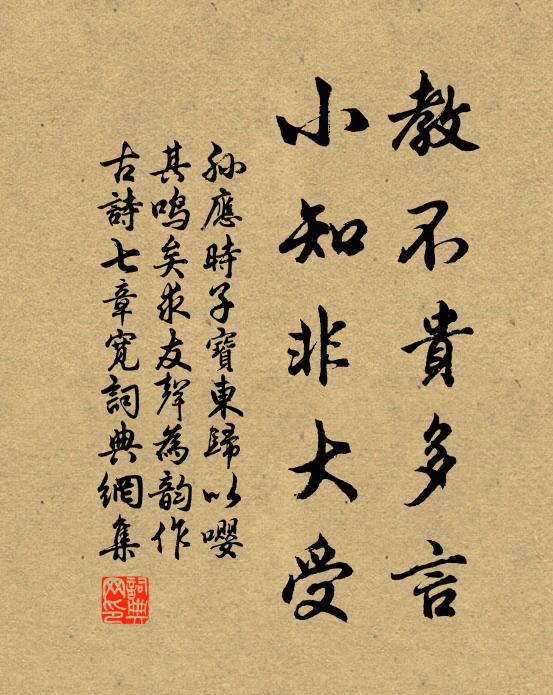 教不貴多言
小知非大受
孫應時子寶東歸以嚶
其鳴矣求友聲為韵作
古詩七章寬詞典網集
詞典
网印